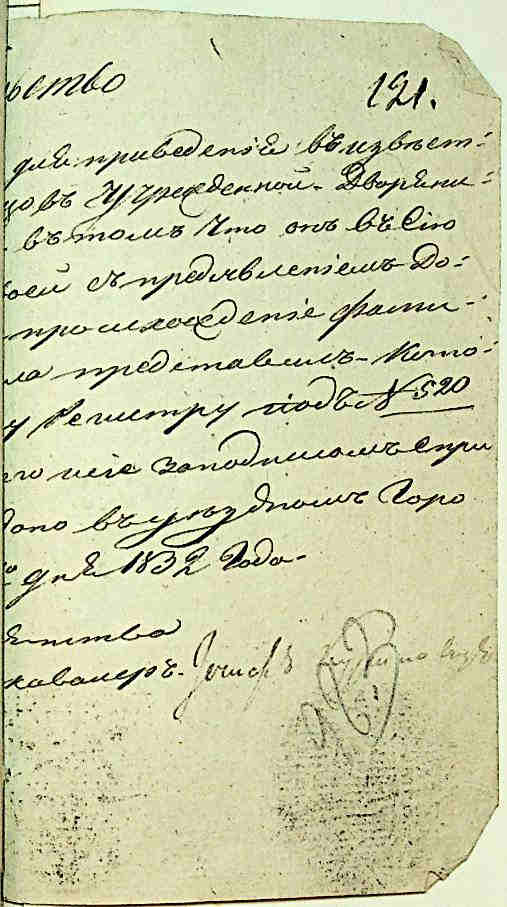 ьство
121.
для приведенiе въ извѣст-
цовъ Учрежденной Дворяни-
въ томъ что онъ въ сiю
съ предъявленiемъ До-
происхожденiе фами-
ла представилъ Кото-
Регистру подъ № 520
его iе заподписомъспри
дано въ уѣздномъ Горо
дня 1832 Года
кавалеръ